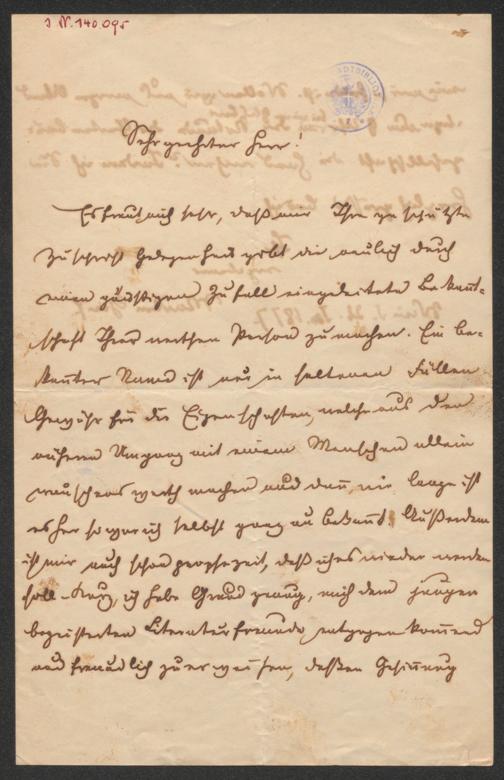 J. N. 140.095
Sehr geehrter Herr!
Es freut mich sehr, daß mir Ihre geschätzte
Zuschrift Gelegenheit gibt die neulich durch
einen günstigen Zufall eingeleitete Bekannt-
schaft Ihrer werthen Person zu machen. Ein be-
kannter Name ist nur in seltenen Fällen
Gewähr für die Eigenschaften, welche aus den
näheren Umgang mit einem Menschen allein
wünschenswerth machen und dann, wie lange ist
es her so war ich selbst ganz unbekannt. Außerdem
ist mir auch schon prophezeit, daß ich es wieder werden
soll. Kurz, ich habe Grund genug, mich dem jungen
begeisterten Literaturfreunde entgegenkommend
und freundlich zu erweisen, dessen Gesinnung